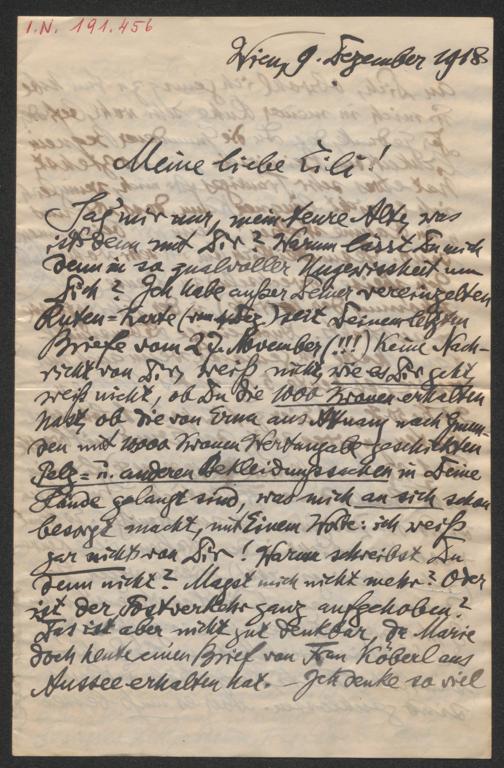 I.N. 191.456
Wien, 9. Dezember 1918
Meine liebe Lili!
Sag' mir nur, mein teure Alte, was
ist's denn mit Dir? Warum lässt Du mich
denn in so qualvoller Ungewissheit um
Dich? Ich habe außer Deiner vereinzelten
Karte (vom 4. Dez.) seit Deinem letzten
Briefe vom 27. November (!!!) keine Nach-
richt von Dir, weiß nicht, wie es Dir geht,
weiß nicht, ob Du die 1000 Kronen erhalten
hast, ob die von Erna aus nach Gmun-
den mit 10000 Kronen Wertangabe geschickten
Pelz- u. anderen Bekleidungssachen in Deine
Hände gelangt sind, was mich an sich schon
besorgt macht, mit Einem Worte: ich weiß
gar nichts von Dir! Warum schreibst Du
denn nicht? Magst mich nicht mehr? Oder
ist der Postverkehr ganz aufgehoben?
Das ist aber nicht gut denkbar, da Marie
doch heute einen Brief von Frau Köberl aus
Aussee erhalten hat. – Ich denke so viel